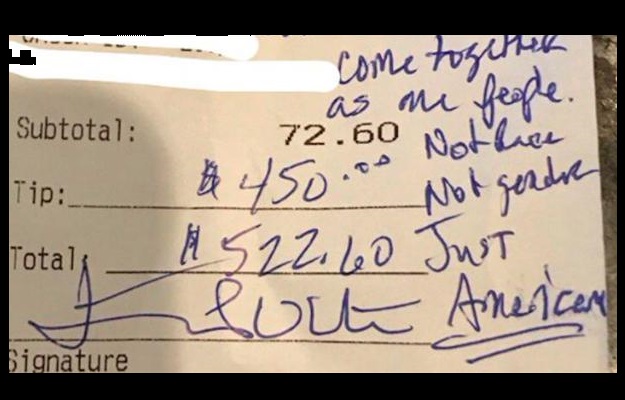 come together
as one people.
Subtotal: 72.60
Not Race
Tip: $ 450.00
Not gender
Total: $ 522.60
Just
American
Signature